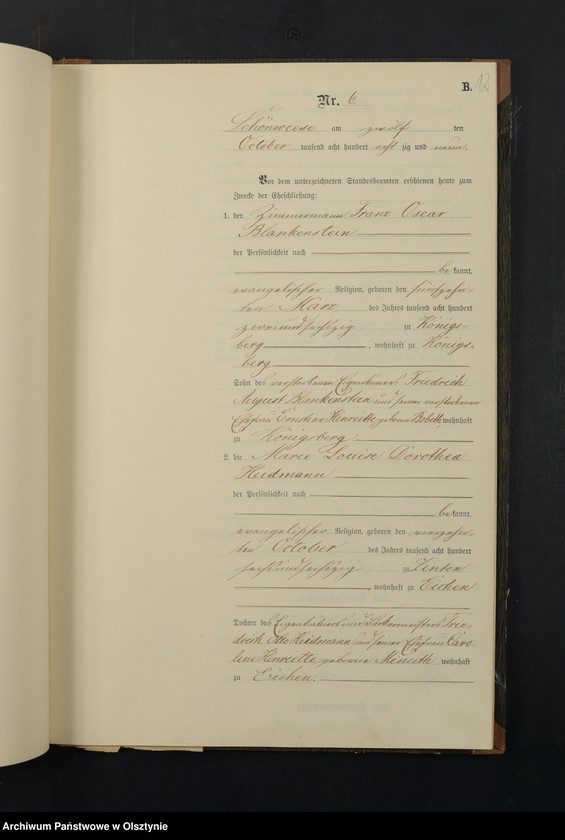 B. 12
Nr. 6
Schönwiese am zwölf ten
October tausend acht hundert acht zig und neun
Vor dem unterzeichneten Standesbeamten erschienen heute zum
Zwecke der Eheschließung:
1. der Zimmermann Franz Oscar
Blankenstein
der Persönlichkeit nach
be kannt,
evangelischer Religion, geboren den fünfzehn-
ten März des Jahres tausend acht hundert
zweiundsechzig zu Königs-
berg, wohnhaft zu Königs-
berg
Sohn des verstorbenen Eigenthümers Friedrich
August Blankenstein und seiner verstorbenen
Ehefrau Ernstine Henriette geborene wohnhaft
zu Königsberg
2. die Marie Louise Dorothea
Heidmann
der Persönlichkeit nach
be kannt,
evangelischer Religion, geboren den vierzehn-
ten October des Jahres tausend acht hundert
sechsundsechzig zu Zinten
, wohnhaft zu Eichen
Tochter des Eigenthümers und Frie-
drich Otto Heidmann und seiner Ehefrau Caro-
line Henriette geborene wohnhaft
zu Eichen.
Archiwum Państwowe w Olsztynie